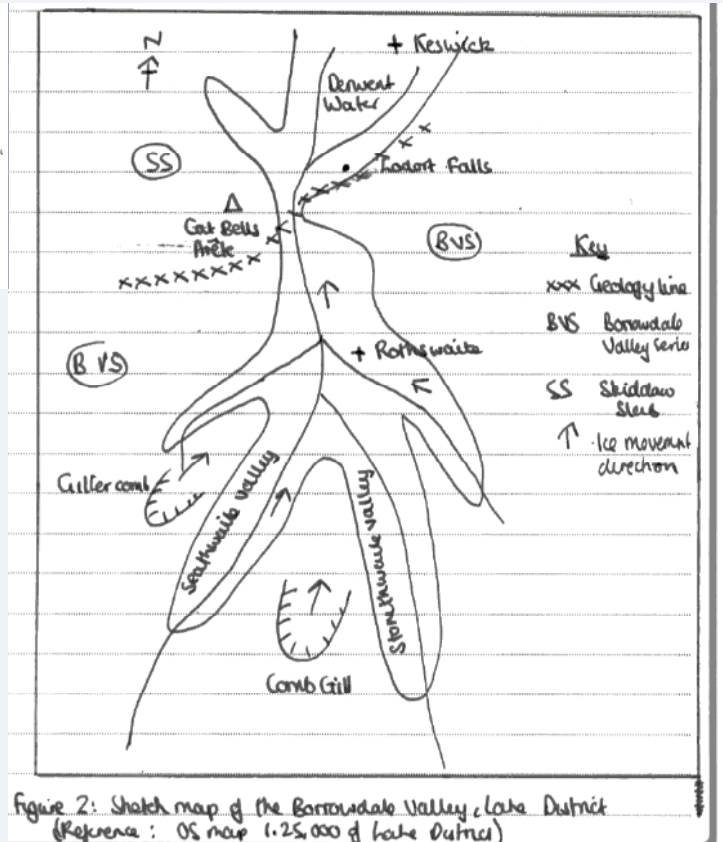 N
+ Keswick
Derwent
Water
SS
Lodort Falls
Cat Bells
Arête
BVS
Key
xxx Geology line
BVS Borrowdale
Valley series
+ Rothswaite
B VS
SS Skiddaw
Slate
↑ Ice movement
direction
Gillercomb
Seathwaite Valley
Stonethwaite valley
Comb Gill
Figure 2: Sketch map of the Borrowdale Valley, Lake District
(Reference: OS map 1:25,000 of Lake District)